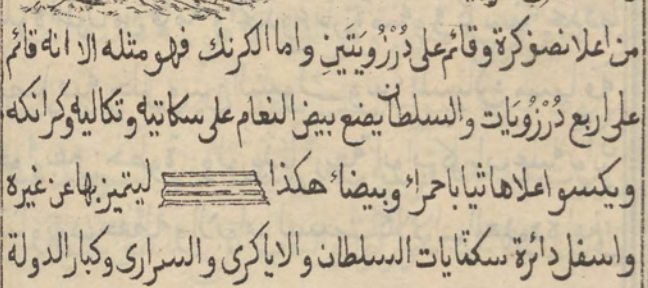 من اعلا نصف كرة وقائم على دُرْزُويَتَينِ واما الكرنك فهو مثله الا انه قائم
على اربع دُرْزُويَات والسلطان يضع بيض النعام على سكاتيه وتكاليه وكرانكه
ويكسو اعلاها ثيابا حمراء وبيضاء هكذا ليتميز بها عن غيره
واسفل دائرة سكتايات السلطان والاياكرى والسرارى وكبار الدولة